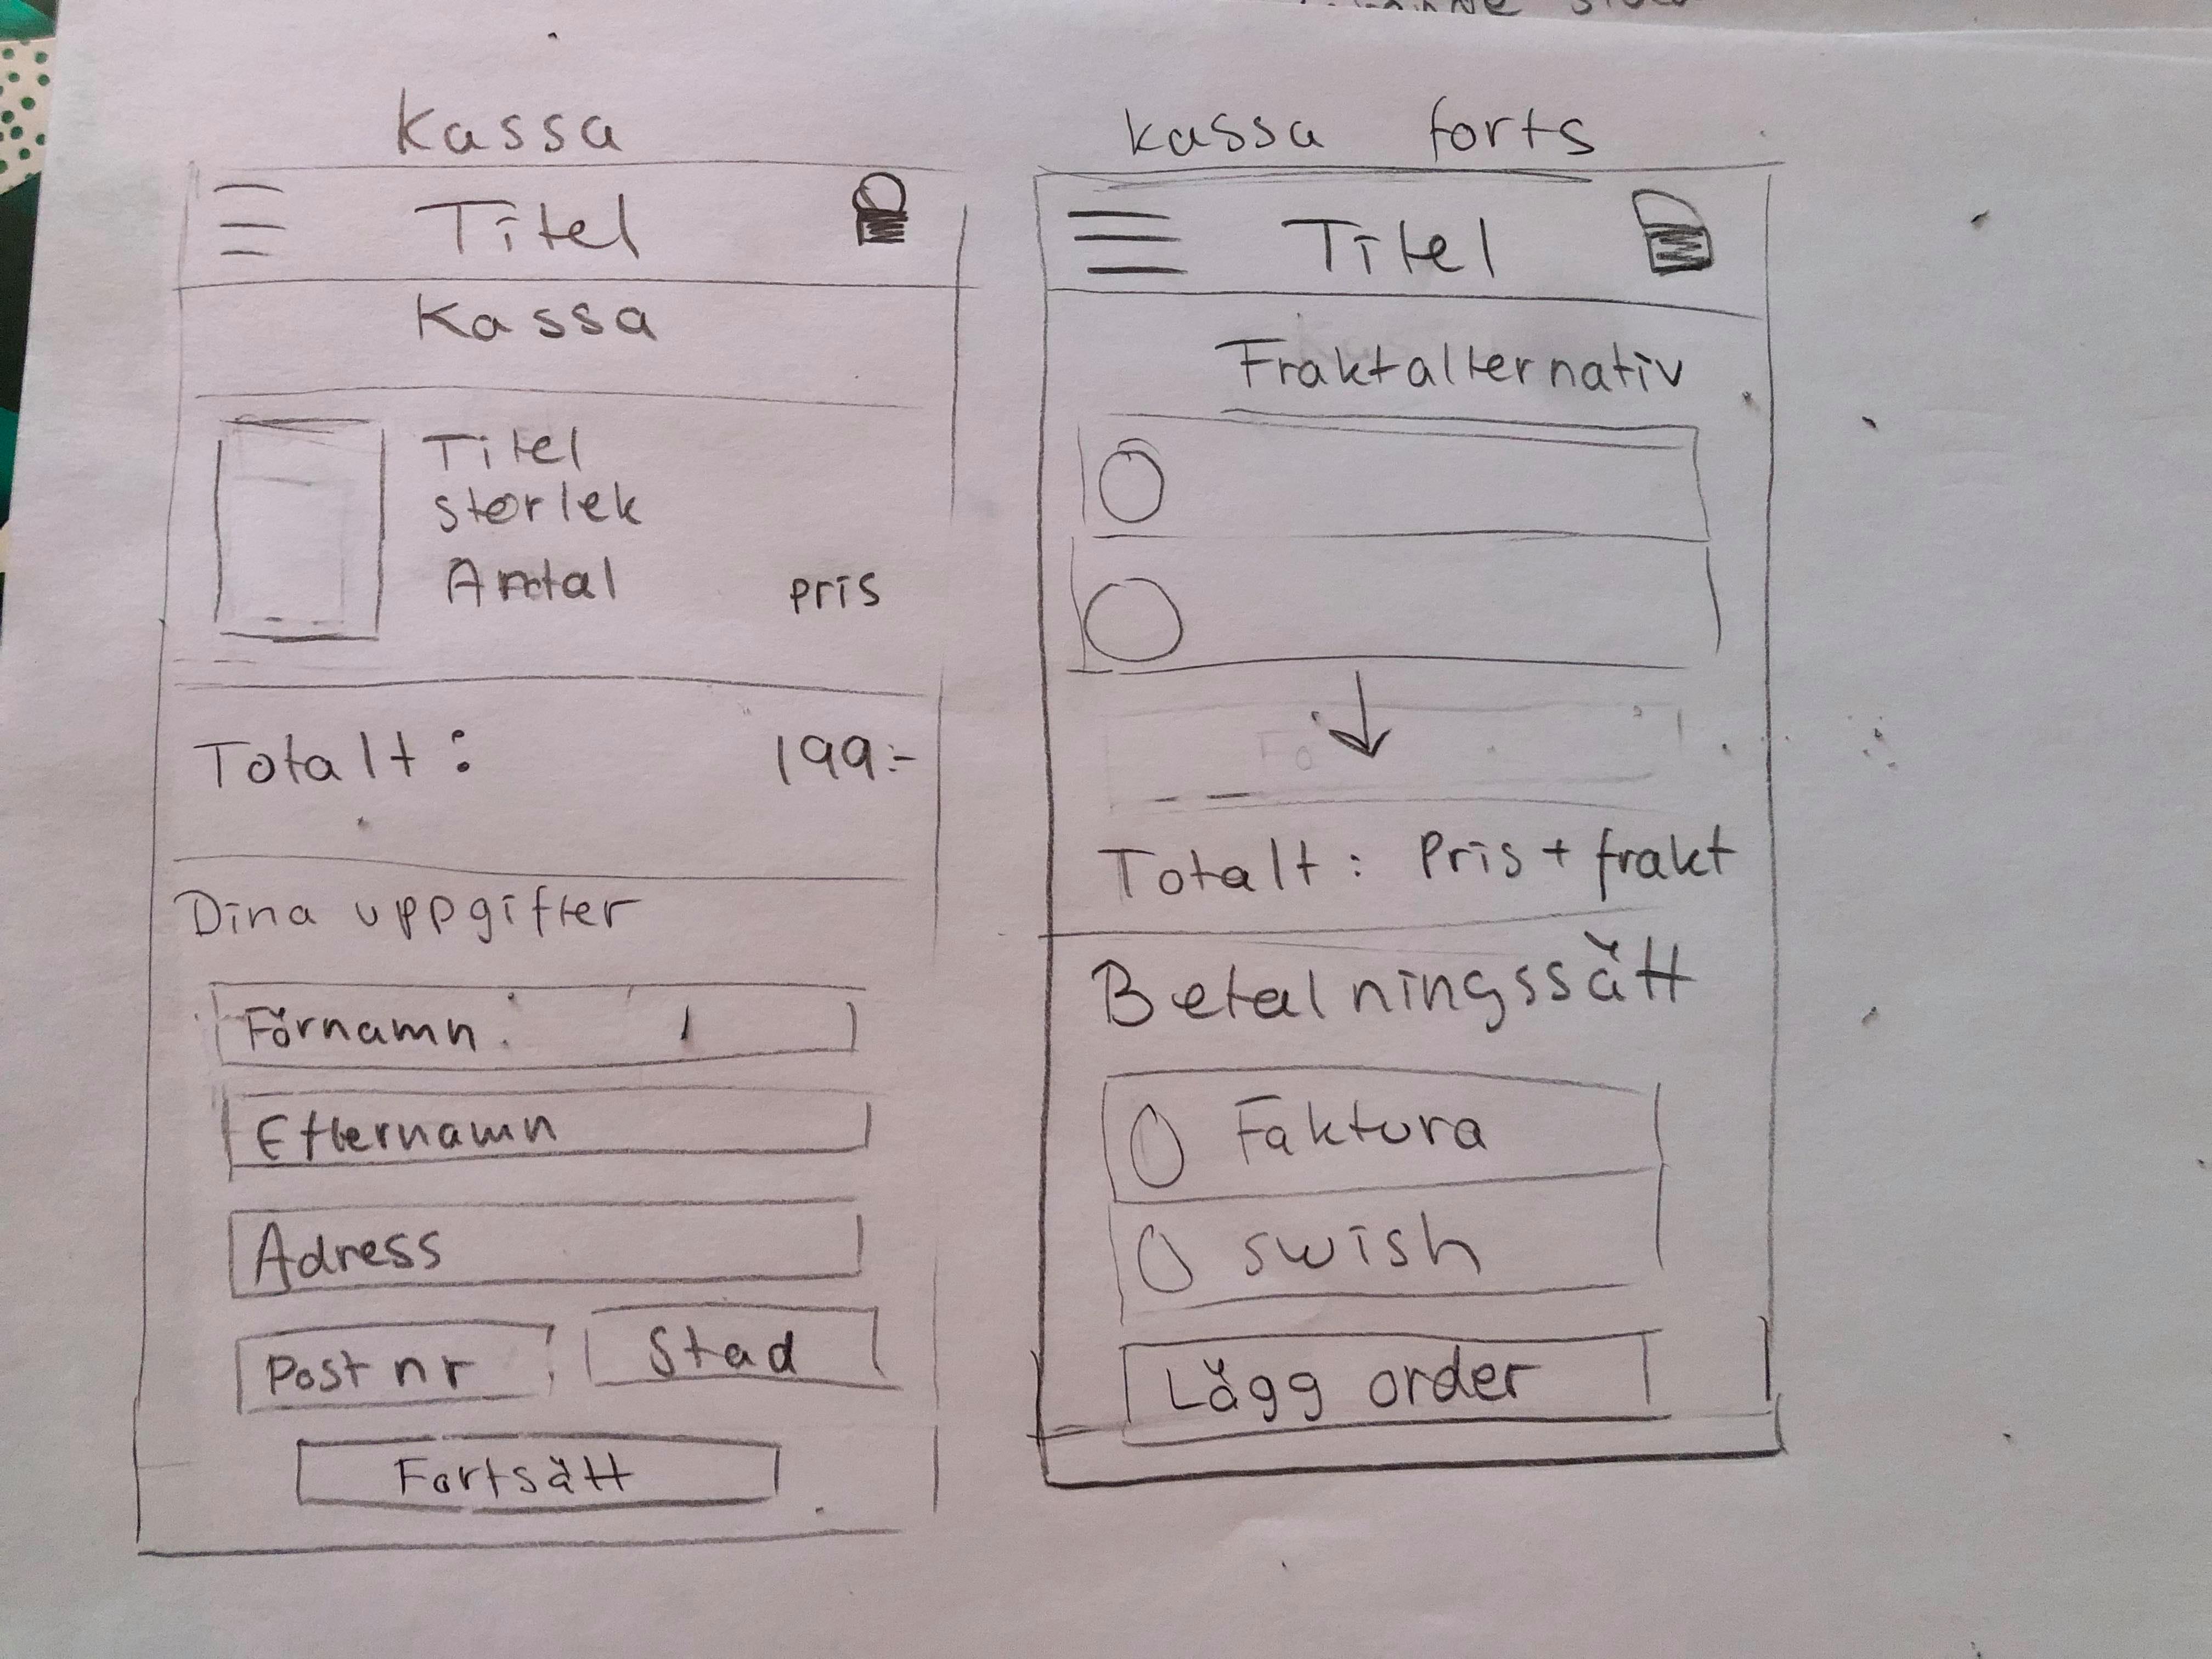 Kassa
Titel
Kassa
Titel
storlek
Antal pris
Totalt: 199:-
Dina uppgifter
Förnamn:
Efternamn
Adress
Post nr Stad
Fortsätt
kassa forts
Titel
Fraktalternativ
Totalt: Pris + frakt
Betalningssätt
Faktura
swish
Lägg order